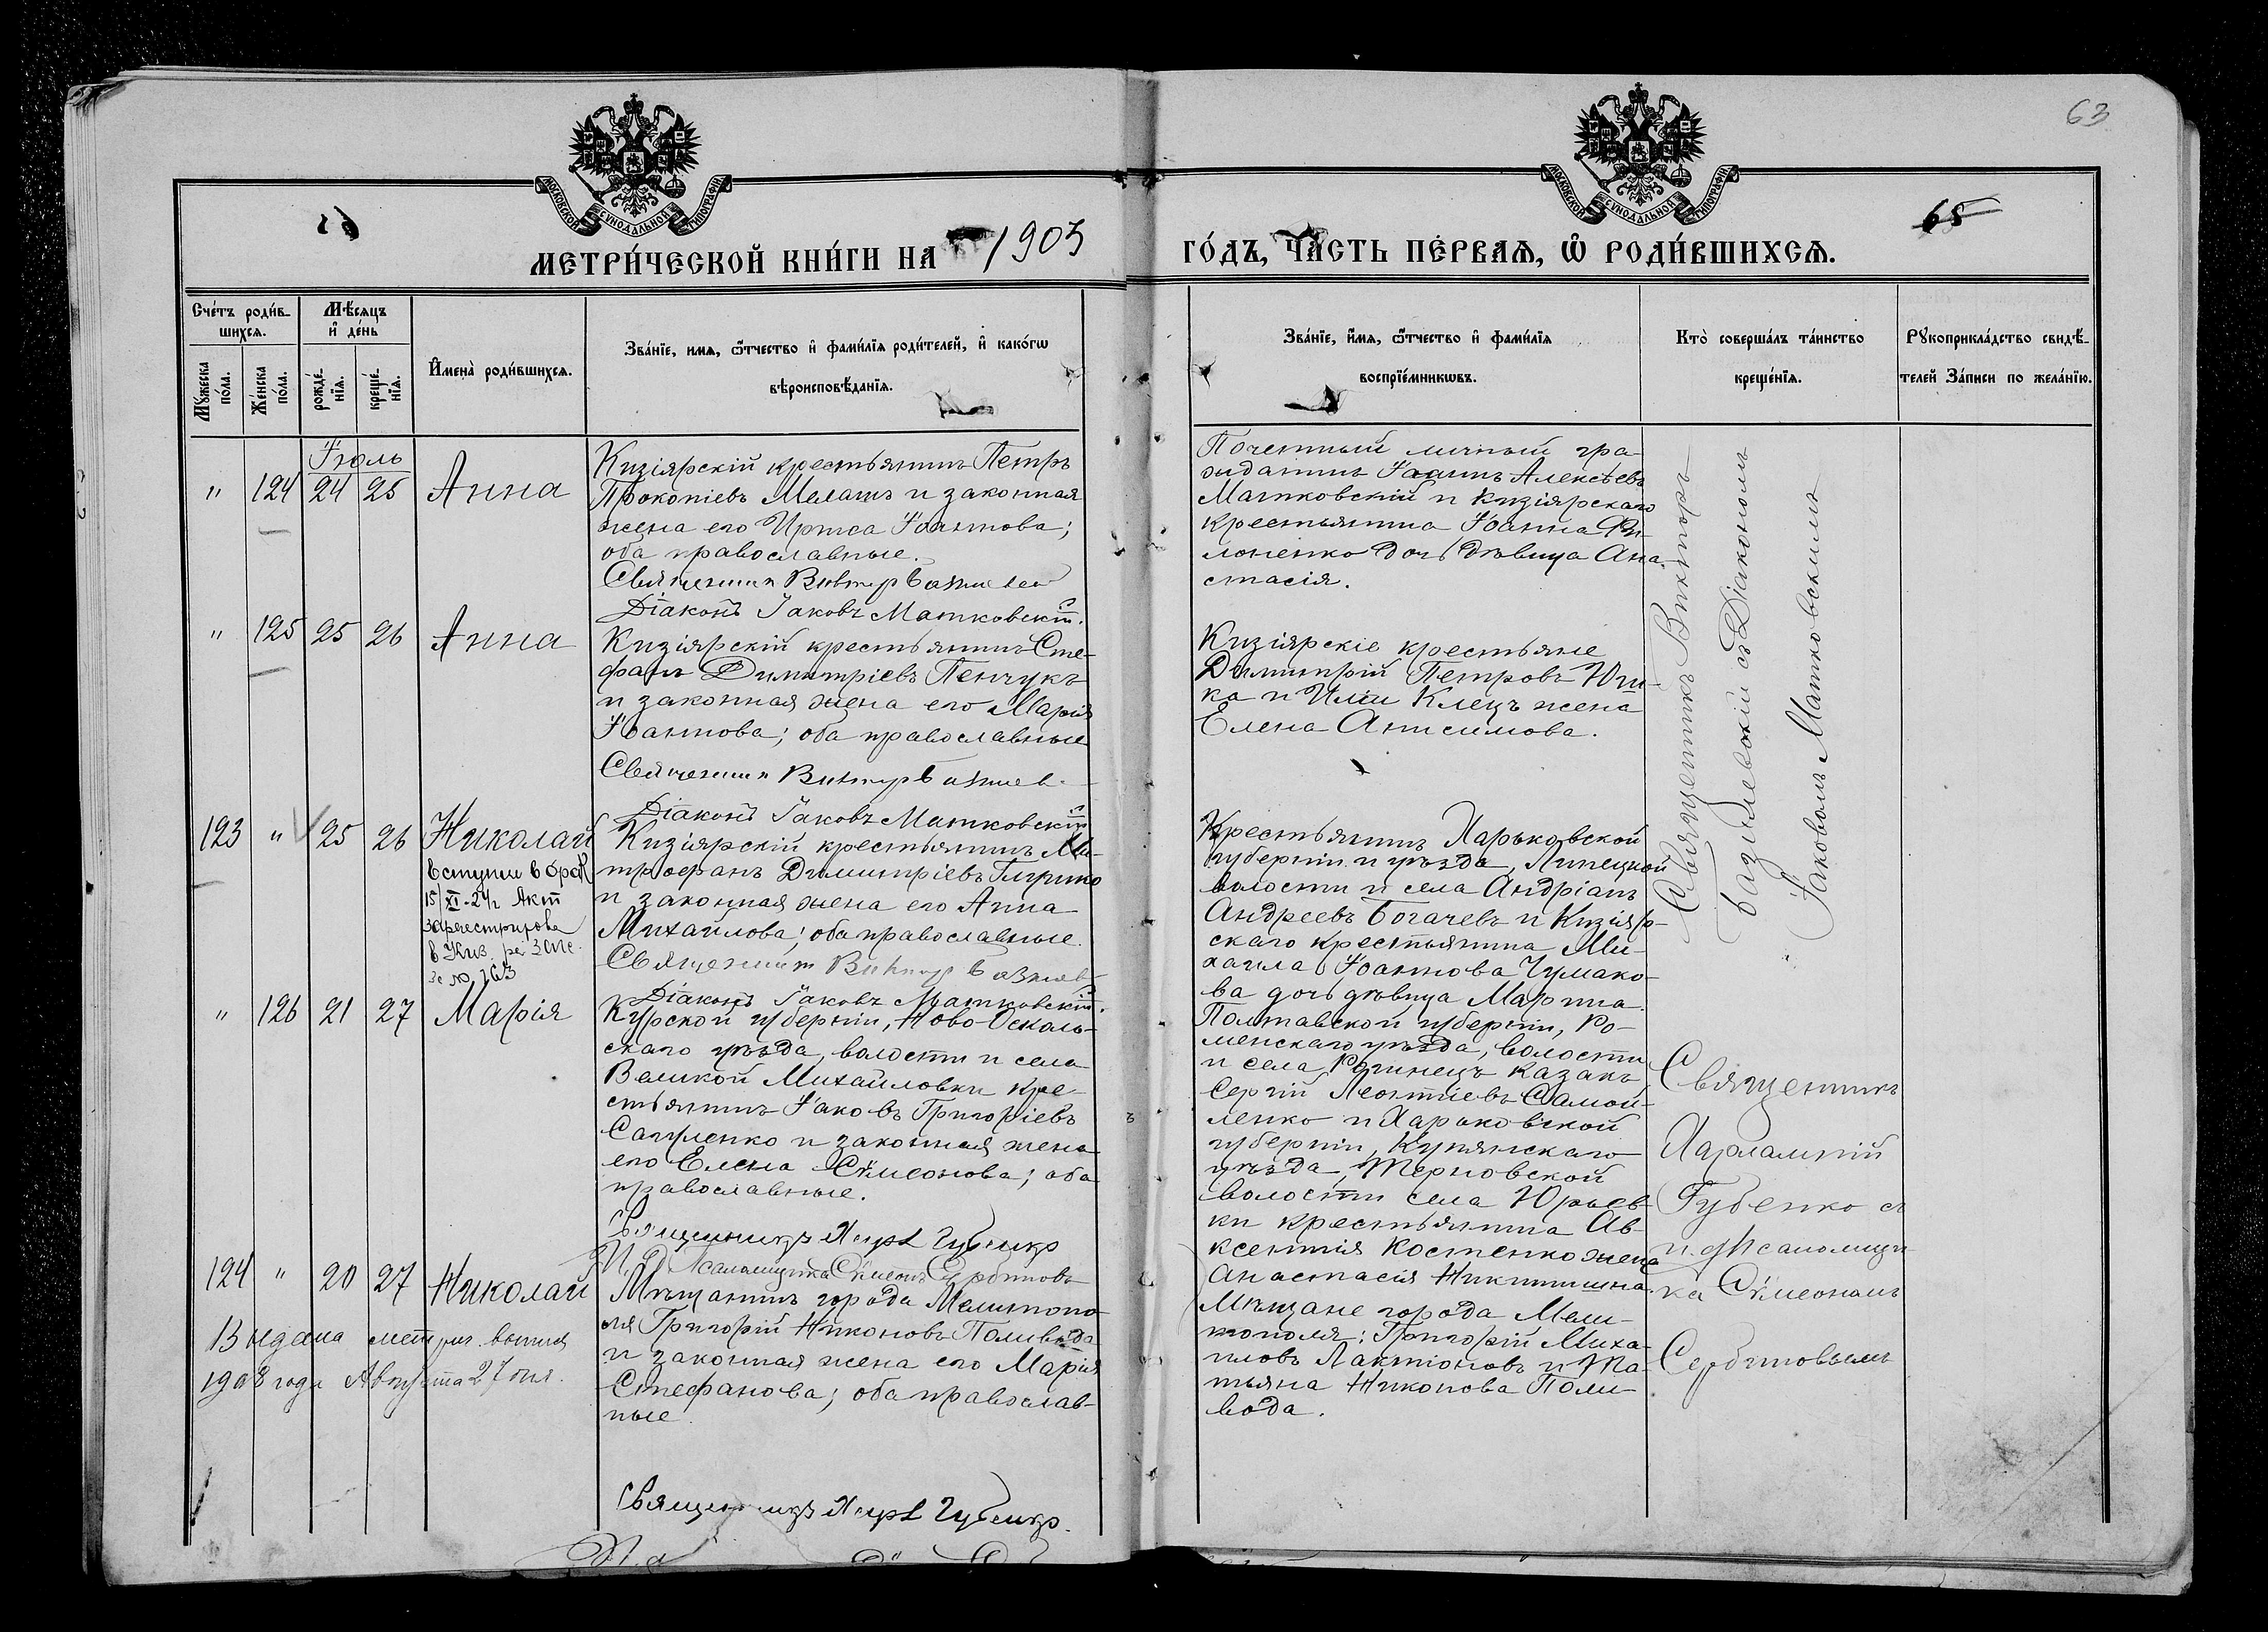 63
65
МОСКОВСКОЙ СУНОДАЛЬНОЙ ТИПОГРАФІИ
МОСКОВСКОЙ СУНОДАЛЬНОЙ ТИПОГРАФІИ
МЕТРИ́ЧЕСКОЙ КНИ́ГИ НА 1903
ГО́ДЪ, ЧА́СТЬ ПЕ́РВАѦ, Ѽ РОДИ́ВШИХСѦ.
Сче́тъ роди́в-
шихсѧ.
Мꙋ́жеска
по́ла.
Же́нска
по́ла.
Мѣ́сѧцъ
и҆ де́нь
рожде́-
нїѧ.
креще́-
нїѧ.
И҆мена̀ роди́вшихсѧ.
Зва́нїе, имѧ, ѻ҆́тчество и҆ фами́лїѧ роди́телей, и҆ како́гѡ
вѣроисповѣ́данїѧ.
Зва́нїе, и҆́мѧ, ѻ҆́тчество и҆ фами́лїѧ
воспрїе́мникѡвъ.
Кто̀ соверша́лъ та́инство
креще́нїѧ.
Рꙋкоприкла́дство свидѣ́-
телей За́писи по жела́нїю.
Іюль
" 124 24 25 Анна
Кизіярскій крестьянинъ Петръ
Прокопіевъ Мелашъ и законная
жена его Ирина Іоаннова;
оба православные.
Священник Виктор
Діаконъ Іаковъ Матковскій.
Почетный личный гра-
жданинъ Іоаннъ Алексѣевъ
Матковскій и Кизіярскаго
крестьянина Іоанна Фи-
лоненко дочь дѣвица Ана-
стасія.
" 125 25 26 Анна
Кизіярскій крестьянинъ Сте-
фанъ Димитріевъ Пенчукъ
и законная жена его Марія
Іоаннова; оба православные
Священник Виктор
Діаконъ Іаковъ Матковскій
Кизіярскіе крестьяне
Димитрій Петровъ Юш-
ка и Иліи Клецъ жена
Елена Анисимова.
123 " 25 26 Николай
Вступил в брак
15/XI-24 г Акт
зарегестрирова
в Киз.
за № 163
Кизіярскій крестьянинъ Ми-
трофанъ Димитріевъ
и законная жена его Анна
Михайлова; оба православные.
Священник Виктор
Діаконъ Іаковъ Матковскій.
Крестьянинъ Харьковской
губерніи и уѣзда, Липецкой
волости и села Андріанъ
Андреевъ Богачевъ и Кизіяр-
скаго крестьянина Ми-
хаила Іоаннова Чумако-
ва дочь дѣвица Марина.
Священникъ Викторъ
Базилевскій съ Діакономъ
Іаковомъ Матковскимъ
" 126 21 27 Марія
Курской губерніи, Ново-Осколь-
скаго уѣзда, волости и села
Великой Михайловки кре-
стьянинъ Іаковъ Григоріевъ
Сапуленко и законная жена
его Елена Сѵмеонова; оба
православные.
Священникъ Харл. Губенко
И. д. Псаломщика Сѵмеонъ Сербиновъ
Полтавской губерніи, Ро-
менскаго уѣзда, волости
и села Рогинецъ казакъ
Сергій Леонтіевъ Самой-
ленко и Харьковской
губерніи, Купянскаго
уѣзда, Терновской
волости села Юрьев-
ки крестьянина Ав-
ксентія Костенко жена
Анастасія Никитишна.
Священникъ
Харлампій
Губенко съ
и. д. псаломщи-
ка Сѵмеономъ
Сербиновымъ
124 " 20 27 Николай
Выдана метрич. выпись
1908 года Августа 27 дня.
Мѣщанинъ города Мелитопо-
ля Григорій Никоновъ Поливода
и законная жена его Марія
Стефанова; оба православ-
ные.
Священникъ Харл. Губенко.
Мѣщане города Мели-
тополя: Григорій Миха-
иловъ Лактіоновъ и Та-
тьяна Никонова Поли-
вода.